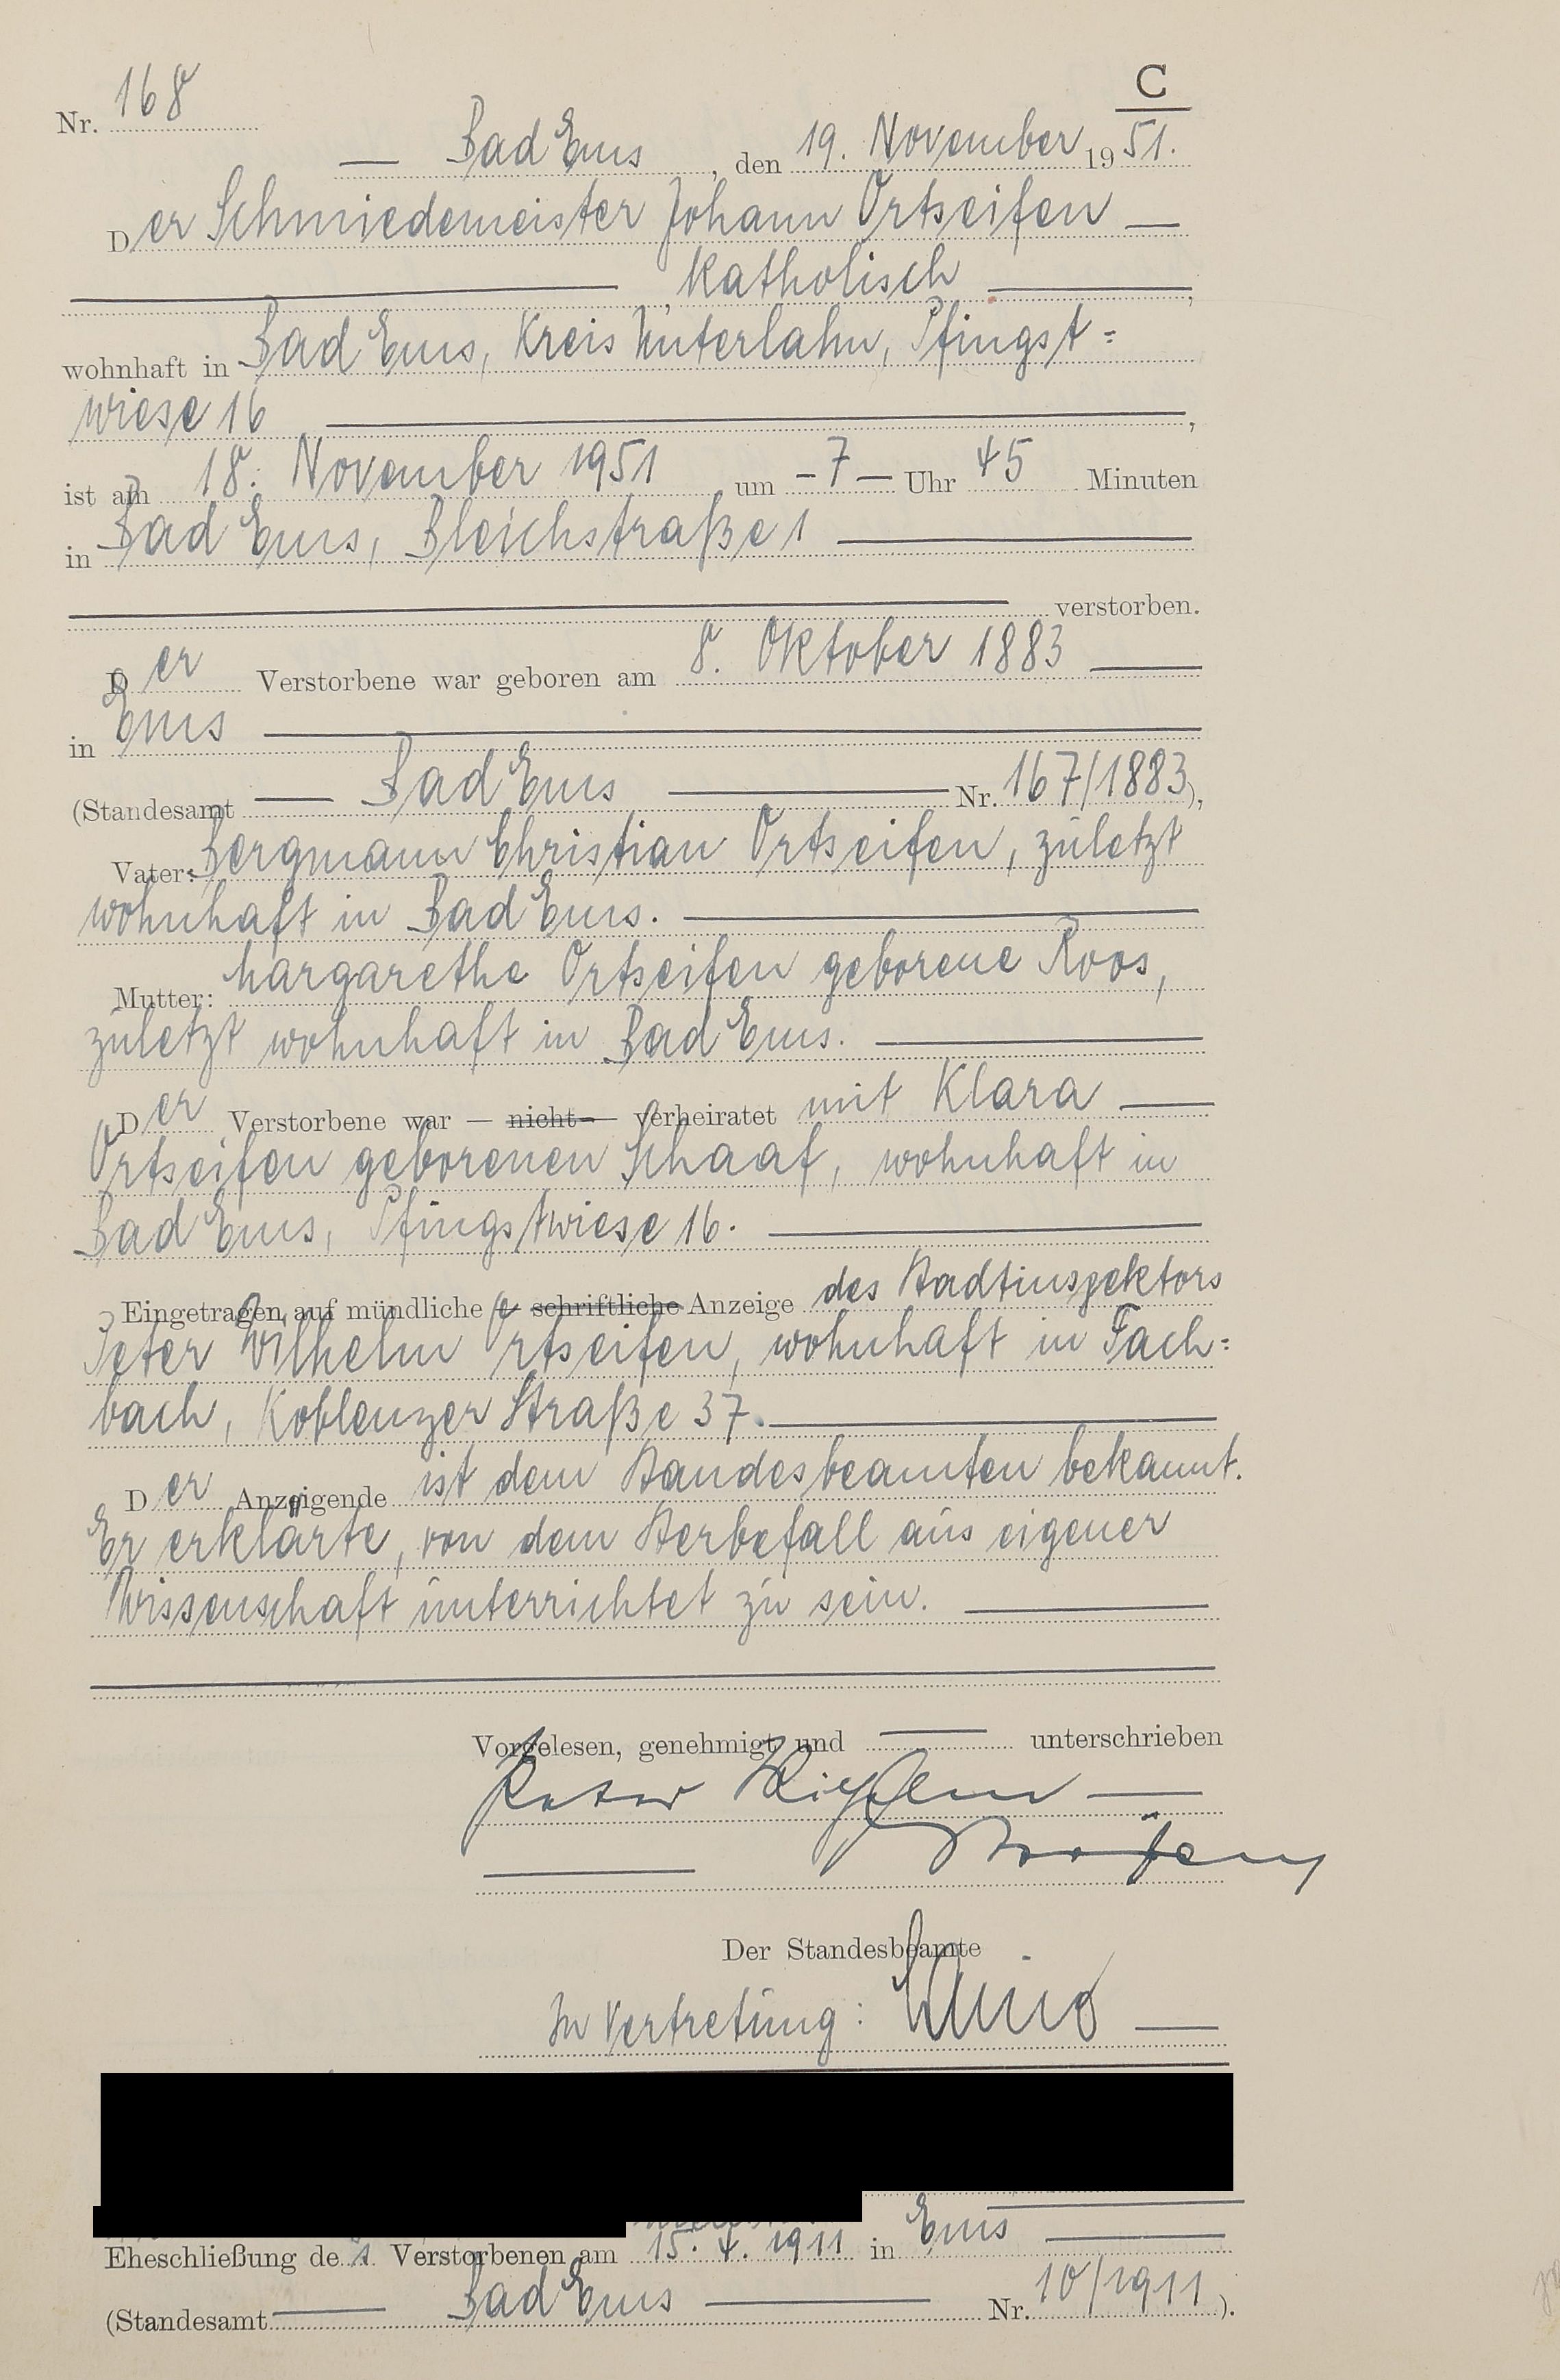 C
Nr. 168
Bad Ems, den 19. November 1951.
Der Schmiedemeister Johann Ortseifen
, katholisch,
wohnhaft in Bad Ems, Kreis Unterlahn, Pfingst=
wiese 16,
ist am 18. November 1951 um 7 Uhr 45 Minuten
in Bad Ems, Bleichstraße 1
verstorben.
Der Verstorbene war geboren am 8. Oktober 1883
in Ems
(Standesamt Bad Ems Nr. 167/1883),
Vater: Bergmann Christian Ortseifen, zuletzt
wohnhaft in Bad Ems.
Mutter: Margarethe Ortseifen geborene Roos,
zuletzt wohnhaft in Bad Ems.
Der Verstorbene war — nicht — verheiratet mit Klara
Ortseifen geborenen Schaaf, wohnhaft in
Bad Ems, Pfingstwiese 16.
Eingetragen auf mündliche schriftliche Anzeige des Stadtinspektors
Peter Wilhelm Ortseifen, wohnhaft in Fach=
bach, Koblenzer Straße 37.
Der Anzeigende ist dem Standesbeamten bekannt.
Er erklärte, von dem Sterbefall aus eigener
Wissenschaft unterrichtet zu sein.
Vorgelesen, genehmigt und unterschrieben
Peter Wilhelm
Der Standesbeamte
In Vertretung:
Eheschließung des Verstorbenen am 15. 4. 1911 in Ems
(Standesamt Bad Ems Nr. 10/1911).